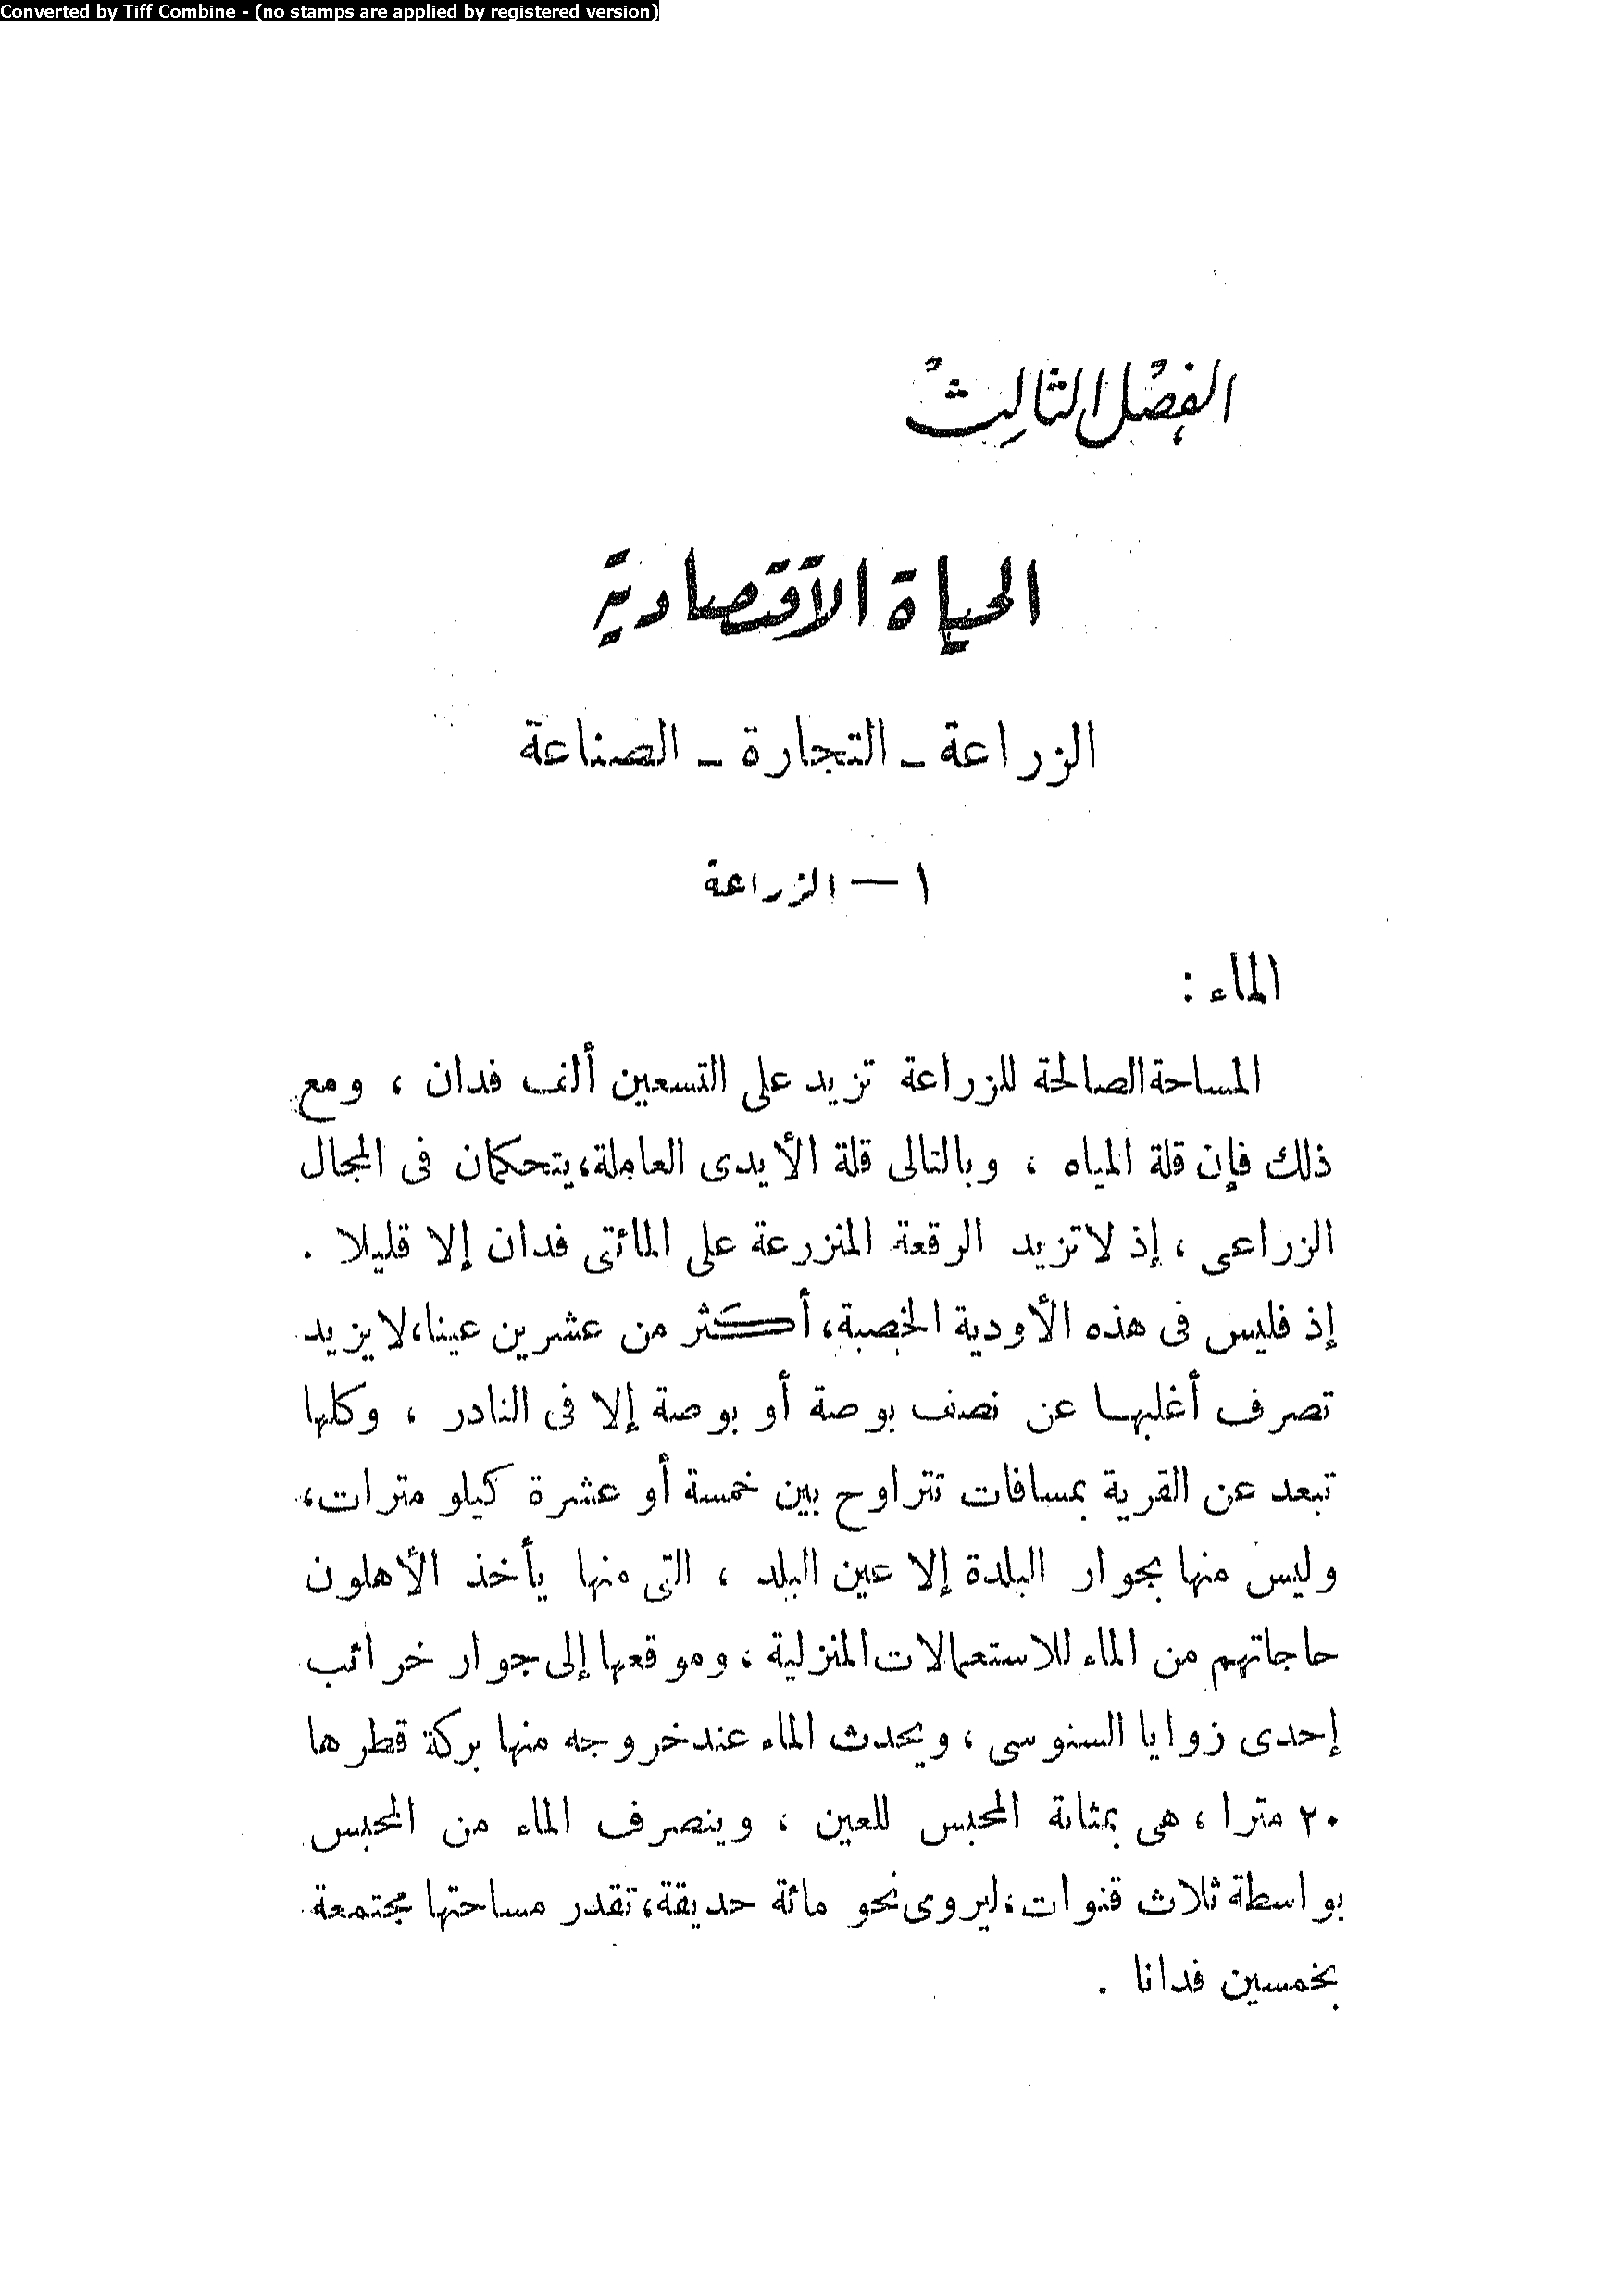 Converted by Tiff Combine - (no stamps are applied by registered version)
الفصل الثالث
الحياة الاقتصادية
الزراعة - التجارة - الصناعة
١ - الزراعة
الماء :
المساحة الصالحة للزراعة تزيد على التسعين ألف فدان ، ومع
ذلك فإن قلة المياه ، وبالتالى قلة الأيدى العاملة، يتحكمان فى المجال
الزراعى ، إذ لا تزيد الرقعة المنزرعة على المائتى فدان إلا قليلا .
إذ فليس فى هذه الأودية الخصبة، أكثر من عشرين عينا، لا يزيد
تصرف أغلبها عن نصف بوصة أو بوصة إلا فى النادر ، وكلها
تبعد عن القرية بمسافات تتراوح بين خمسة أو عشرة كيلو مترات،
وليس منها بجوار البلدة إلا عين البلد ، التى منها يأخذ الأهلون
حاجاتهم من الماء للاستعمالات المنزلية ، وموقعها إلى جوار خرائب
إحدى زوايا السنوسى ، ويحدث الماء عند خروجه منها بركة قطرها
٢٠ مترا ، هى بمثابة المحبس للعين ، وينصرف الماء من المحبس
بواسطة ثلاث قنوات، ليروى نحو مائة حديقة، تقدر مساحتها مجتمعة
بخمسين فدانا .